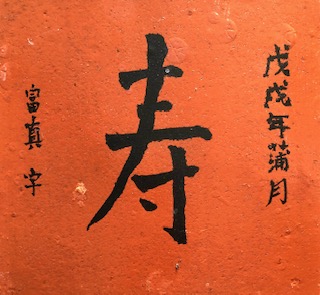 戊戌年蒲月
寿
富真字